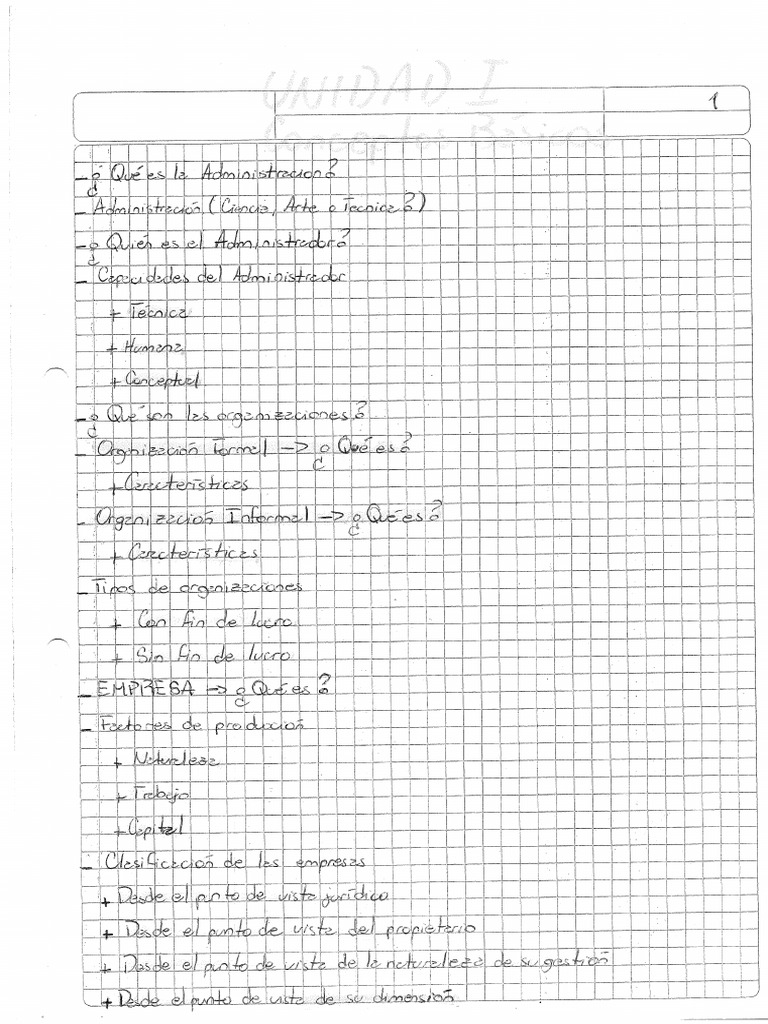 UNIDAD I
1
- ¿Qué es la Administración?
- Administración (Ciencia, Arte o Técnica?)
- ¿Quién es el Administrador?
- Capacidades del Administrador
+ Técnica
+ Humana
+ Conceptual
- ¿Qué son las organizaciones?
- Organización Formal -> ¿Qué es?
+ Características
- Organización Informal -> ¿Qué es?
+ Características
- Tipos de organizaciones
+ Con fin de lucro
+ Sin fin de lucro
- EMPRESA -> ¿Qué es?
- Factores de producción
+ Naturaleza
+ Trabajo
+ Capital
- Clasificación de las empresas
+ Desde el punto de vista jurídico
+ Desde el punto de vista del propietario
+ Desde el punto de vista de la naturaleza de su gestión
+ Desde el punto de vista de su dimensión